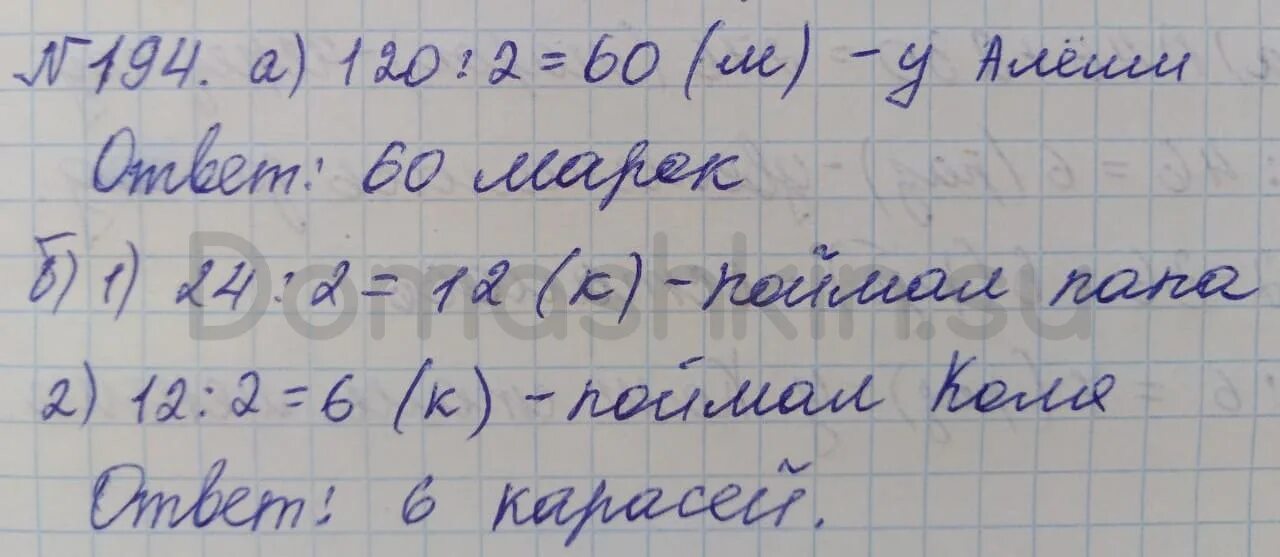 №194. а) 120:2=60 (м) - у Алёши
Ответ: 60 марок
б) 1) 24:2=12 (к) - поймал папа
Domashkin.su
2) 12:2=6 (к) - поймал Коля
Ответ: 6 карасей.